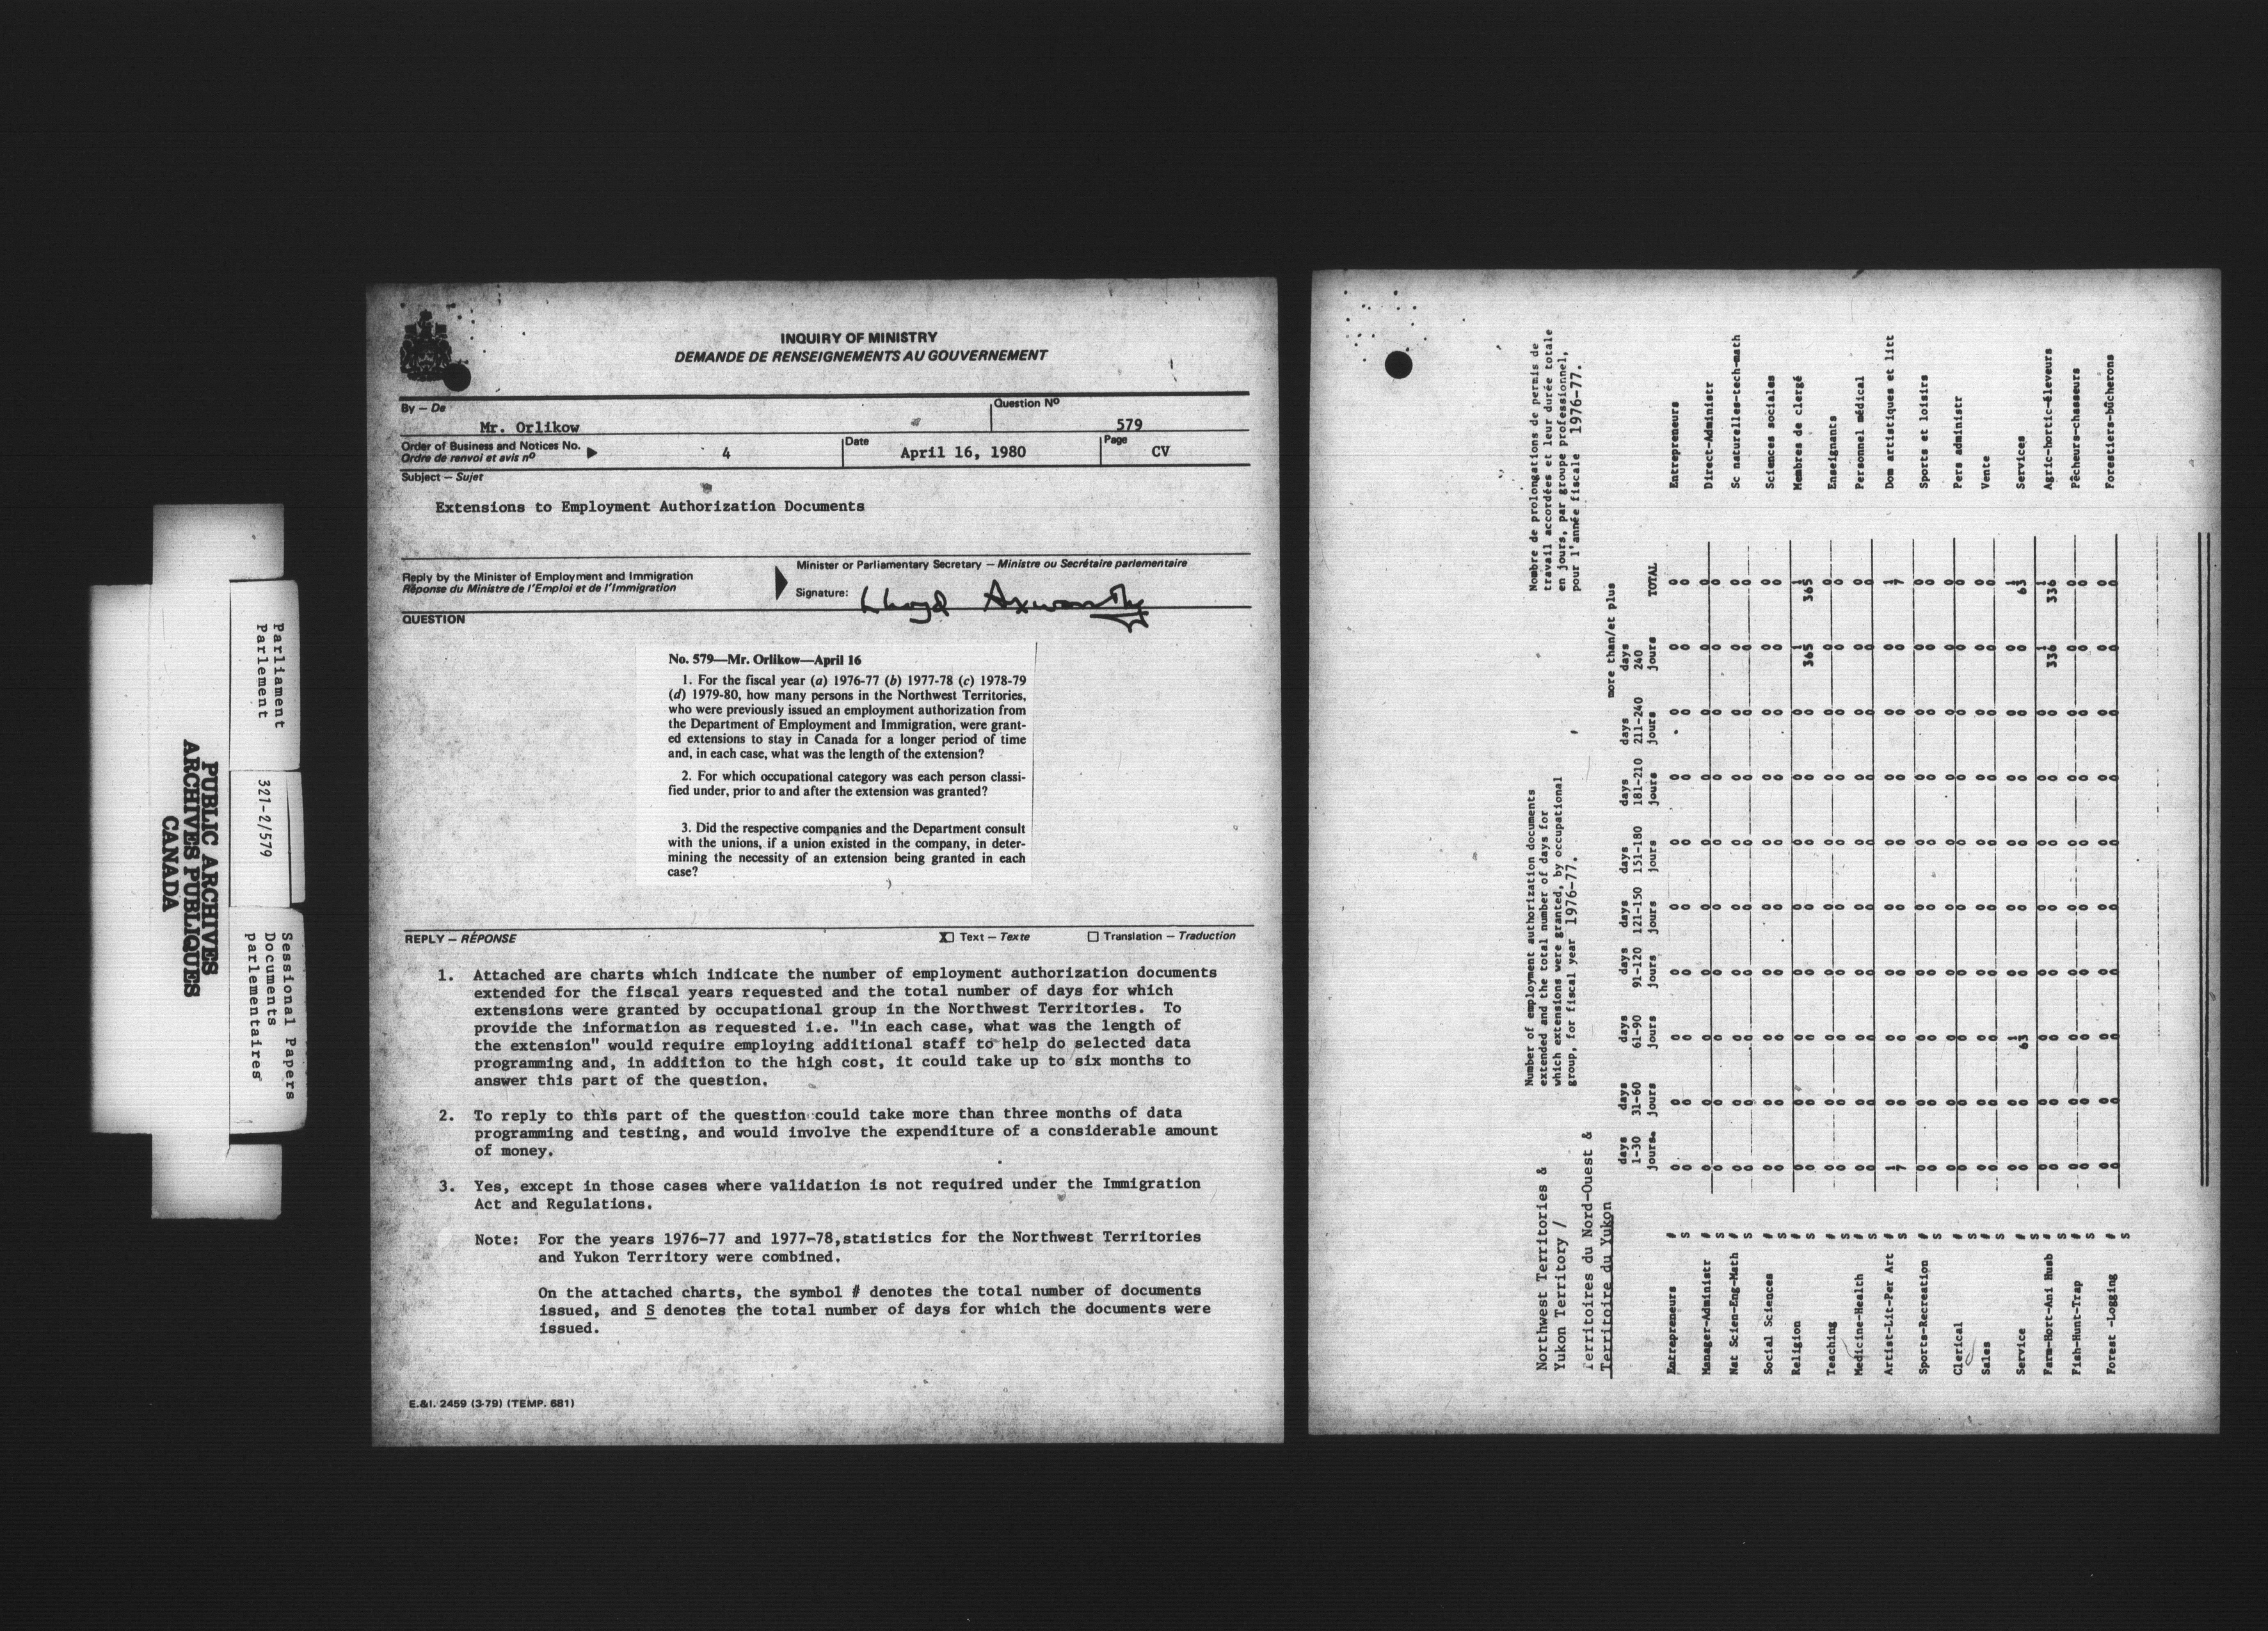 PUBLIC ARCHIVES
ARCHIVES PUBLIQUES
CANADA
Parliament
Parlement
321-2/579
Sessional Papers
Documents
parlementaires
INQUIRY OF MINISTRY
DEMANDE DE RENSEIGNEMENTS AU GOUVERNEMENT
By – De
Mr. Orlikow
Question Nº
579
Order of Business and Notices No.
Ordre de renvoi et avis nº
4
Date
April 16, 1980
Page
CV
Subject – Sujet
Extensions to Employment Authorization Documents
Reply by the Minister of Employment and Immigration
Réponse du Ministre de l'Emploi et de l'Immigration
Minister or Parliamentary Secretary – Ministre ou Secrétaire parlementaire
Signature: Lloyd Axworthy
QUESTION
No. 579—Mr. Orlikow—April 16
1. For the fiscal year (a) 1976-77 (b) 1977-78 (c) 1978-79
(d) 1979-80, how many persons in the Northwest Territories,
who were previously issued an employment authorization from
the Department of Employment and Immigration, were grant-
ed extensions to stay in Canada for a longer period of time
and, in each case, what was the length of the extension?
2. For which occupational category was each person classi-
fied under, prior to and after the extension was granted?
3. Did the respective companies and the Department consult
with the unions, if a union existed in the company, in deter-
mining the necessity of an extension being granted in each
case?
REPLY – RÉPONSE
X Text – Texte
Translation – Traduction
1. Attached are charts which indicate the number of employment authorization documents
extended for the fiscal years requested and the total number of days for which
extensions were granted by occupational group in the Northwest Territories. To
provide the information as requested i.e. "in each case, what was the length of
the extension" would require employing additional staff to help do selected data
programming and, in addition to the high cost, it could take up to six months to
answer this part of the question.
2. To reply to this part of the question could take more than three months of data
programming and testing, and would involve the expenditure of a considerable amount
of money.
3. Yes, except in those cases where validation is not required under the Immigration
Act and Regulations.
Note: For the years 1976-77 and 1977-78, statistics for the Northwest Territories
and Yukon Territory were combined.
On the attached charts, the symbol # denotes the total number of documents
issued, and S denotes the total number of days for which the documents were
issued.
E.&I. 2459 (3-79) (TEMP. 681)
Northwest Territories &
Yukon Territory /
Territoires du Nord-Ouest &
Territoire du Yukon
Number of employment authorization documents
extended and the total number of days for
which extensions were granted, by occupational
group, for fiscal year 1976-77.
Nombre de prolongations de permis de
travail accordées et leur durée totale
en jours, par groupe professionnel,
pour l'année fiscale 1976-77.
more than/et plus
days days days days days days days days days
1-30 31-60 61-90 91-120 121-150 151-180 181-210 211-240 240 TOTAL
jours. jours jours jours jours jours jours jours jours
Entrepreneurs # 0 0 0 0 0 0 0 0 0 0 Entrepreneurs
S 0 0 0 0 0 0 0 0 0 0
Manager-Administr # 0 0 0 0 0 0 0 0 0 0 Direct-Administr
S 0 0 0 0 0 0 0 0 0 0
Nat Scien-Eng-Math # 0 0 0 0 0 0 0 0 0 0 Sc naturelles-tech-math
S 0 0 0 0 0 0 0 0 0 0
Social Sciences # 0 0 0 0 0 0 0 0 0 0 Sciences sociales
S 0 0 0 0 0 0 0 0 0 0
Religion # 0 0 0 0 0 0 0 0 1 1 Membres de clergé
S 0 0 0 0 0 0 0 0 365 365
Teaching # 0 0 0 0 0 0 0 0 0 0 Enseignants
S 0 0 0 0 0 0 0 0 0 0
Medicine-Health # 0 0 0 0 0 0 0 0 0 0 Personnel médical
S 0 0 0 0 0 0 0 0 0 0
Artist-Lit-Per Art # 1 0 0 0 0 0 0 0 0 1 Dom artistiques et litt
S 7 0 0 0 0 0 0 0 0 7
Sports-Recreation # 0 0 0 0 0 0 0 0 0 0 Sports et loisirs
S 0 0 0 0 0 0 0 0 0 0
Clerical # 0 0 0 0 0 0 0 0 0 0 Pers administr
S 0 0 0 0 0 0 0 0 0 0
Sales # 0 0 0 0 0 0 0 0 0 0 Vente
S 0 0 0 0 0 0 0 0 0 0
Service # 0 0 1 0 0 0 0 0 0 1 Services
S 0 0 63 0 0 0 0 0 0 63
Farm-Hort-Ani Husb # 0 0 0 0 0 0 0 0 1 1 Agric-hortic-éleveurs
S 0 0 0 0 0 0 0 0 336 336
Fish-Hunt-Trap # 0 0 0 0 0 0 0 0 0 0 Pêcheurs-chasseurs
S 0 0 0 0 0 0 0 0 0 0
Forest -Logging # 0 0 0 0 0 0 0 0 0 0 Forestiers-bûcherons
S 0 0 0 0 0 0 0 0 0 0